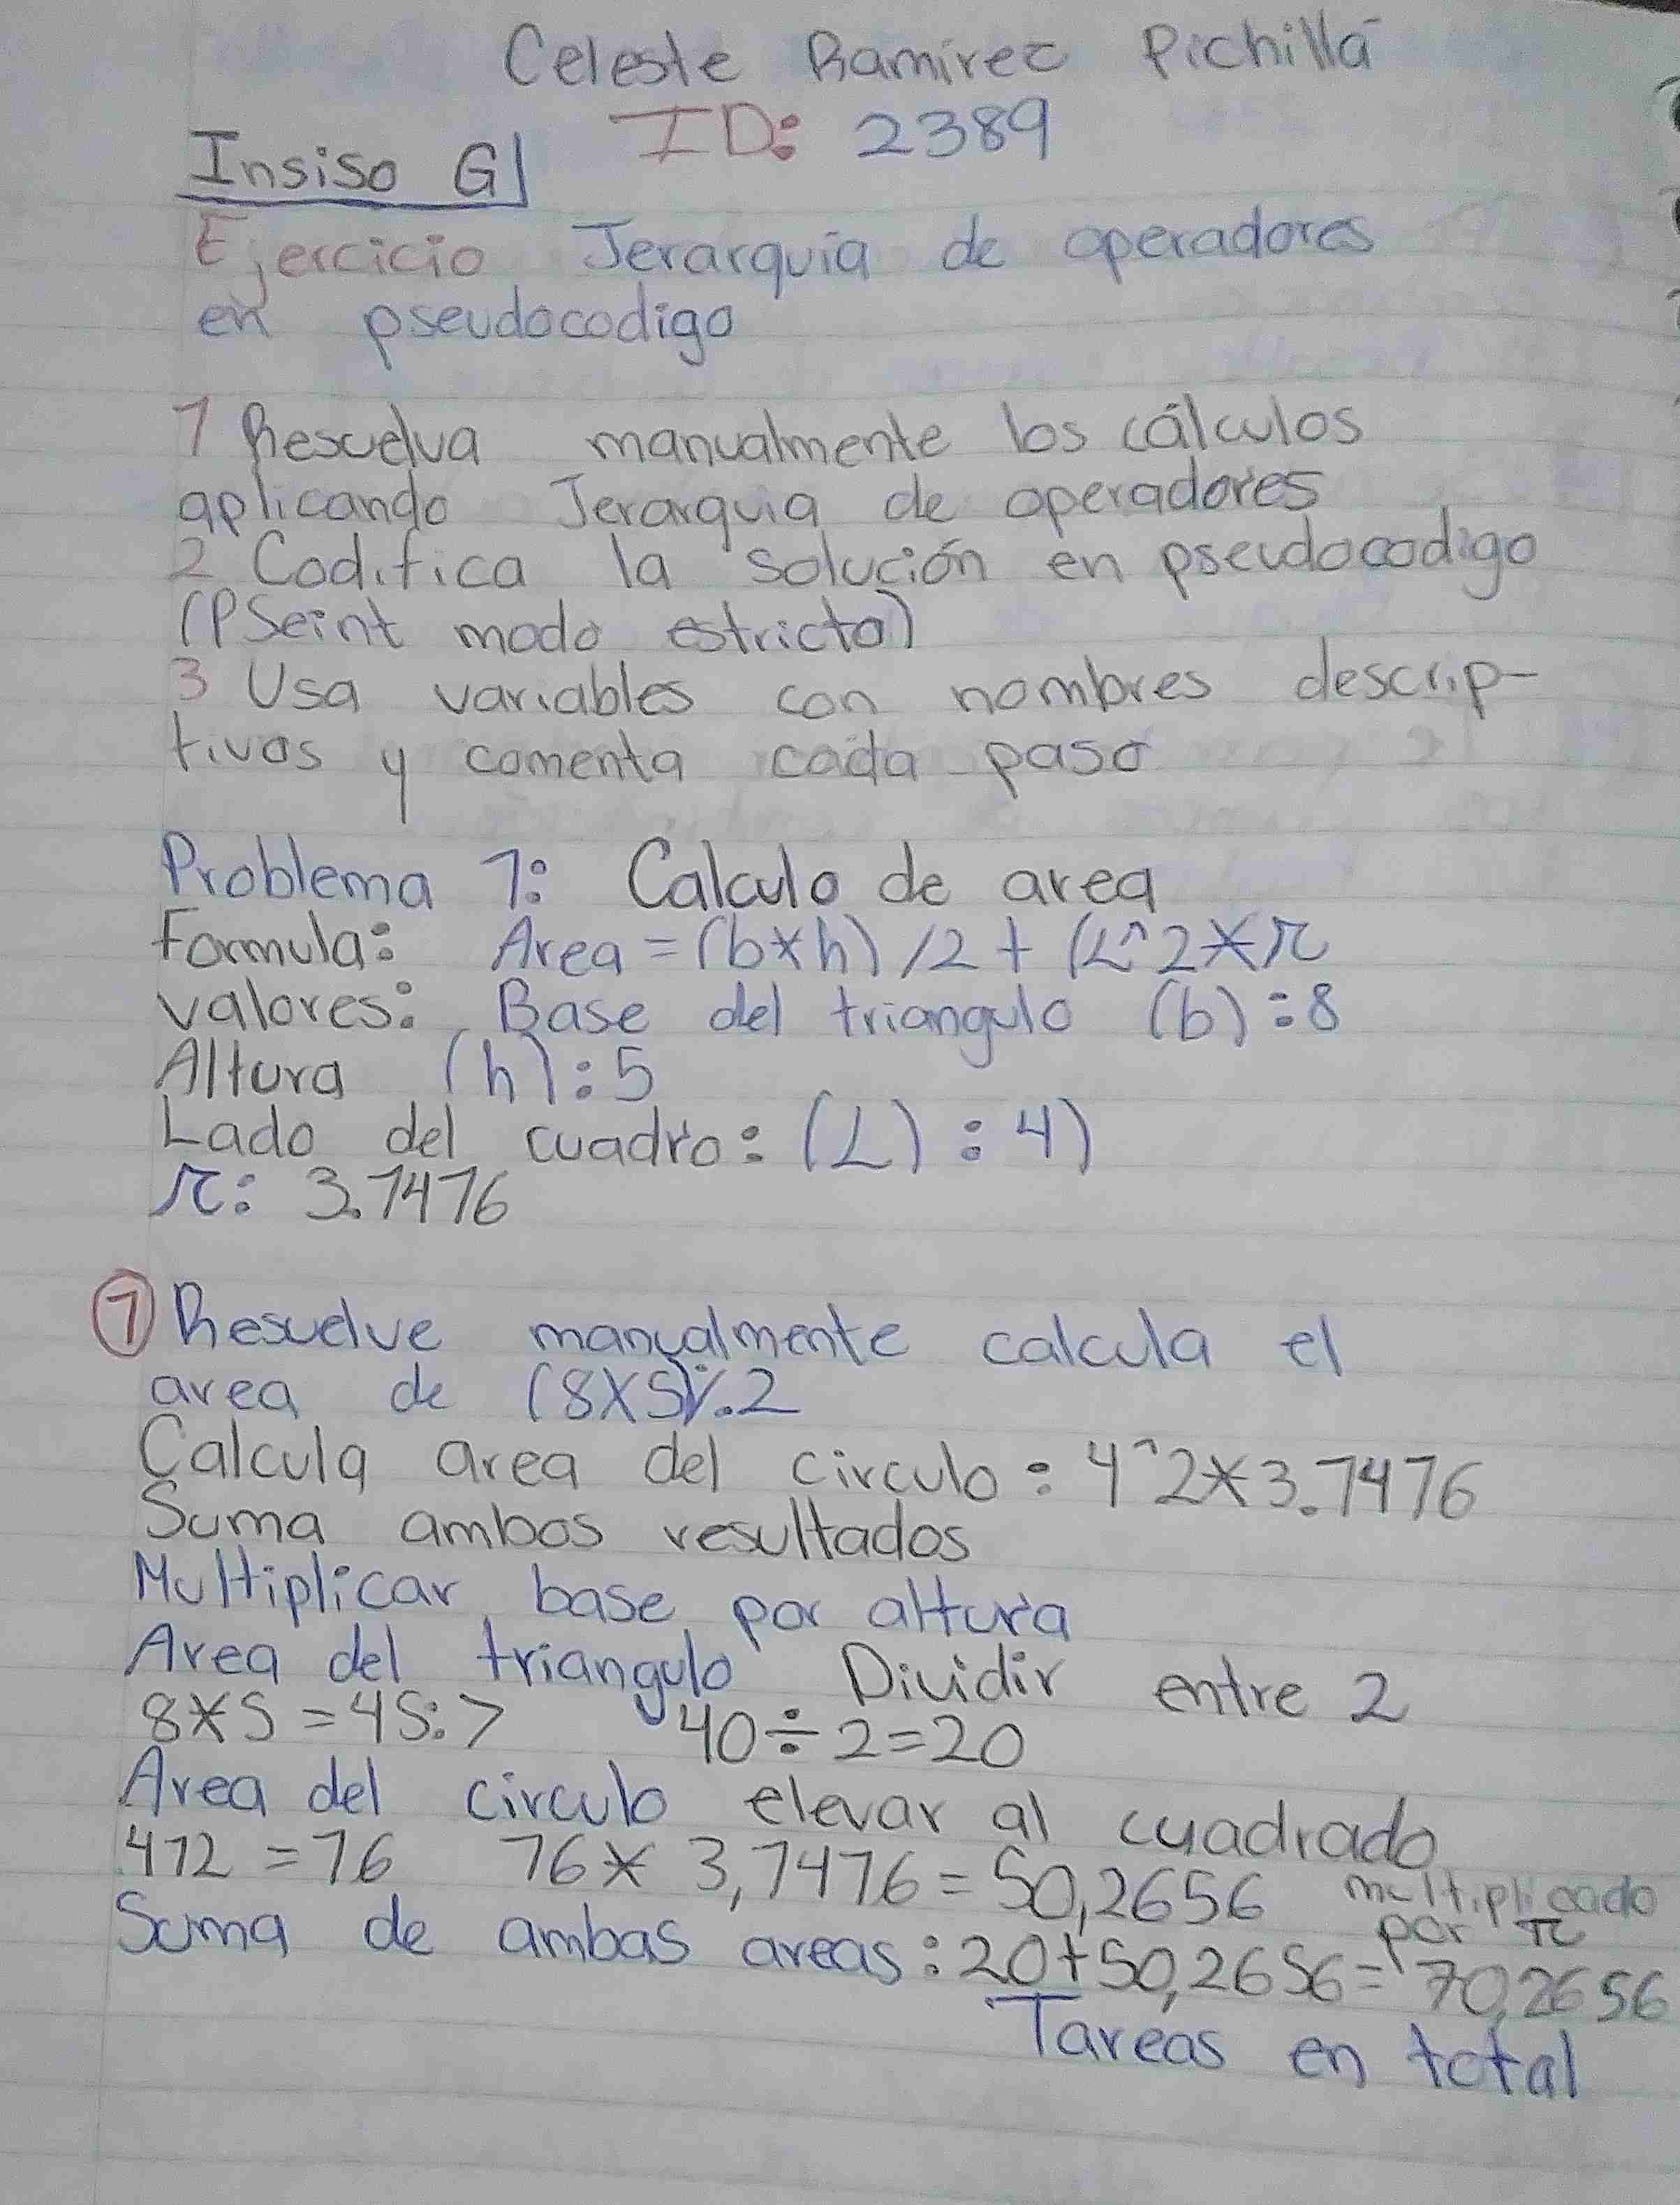 Celeste Ramirez Pichillá
ID: 2389
Insiso G
Ejercicio Jerarquia de operadores
en pseudocodigo
1 Resuelva manualmente los cálculos
aplicando Jerarquia de operadores
2 Codifica la solución en pseudocodigo
(PSeint modo estricto)
3 Usa variables con nombres descrip-
tivos y comenta cada paso
Problema 1: Calculo de area
Formula: Area = (b*h) /2 + (L^2*π
valores: Base del triangulo (b) :8
Altura (h) : 5
Lado del cuadro: (L) : 4)
π: 3.1416
① Resuelve manualmente calcula el
area de (8X5)÷2
Calcula area del circulo: 4^2*3.1416
Suma ambos resultados
Multiplicar base por altura
Area del triangulo Dividir entre 2
8*5 = 45:> 40÷2=20
Area del circulo elevar al cuadrado
412 = 16 16* 3,1416 = 50,2656 multiplicado
por π
Suma de ambas areas: 20+50,2656= 70,2656
Tareas en total